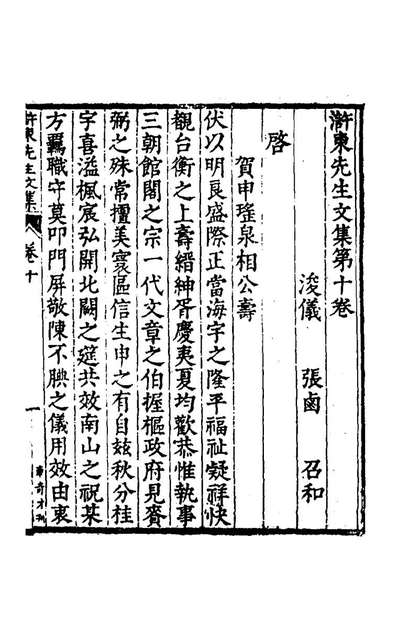 滸東先生文集第十卷
浚儀 張鹵 召和
啓
賀申瑤泉相公壽
伏以明良盛際正當海宇之隆平福祉凝祥快
覩台衡之上壽縉紳胥慶夷夏均歡恭惟執事
三朝館閣之宗一代文章之伯握樞政府見賚
弼之殊常擅美寰區信生申之有自兹秋分桂
宇喜溢楓宸弘開北闕之筵共效南山之祝某
方羈職守莫叩門屏敬陳不腆之儀用效由衷
滸東先生文集 卷十
一